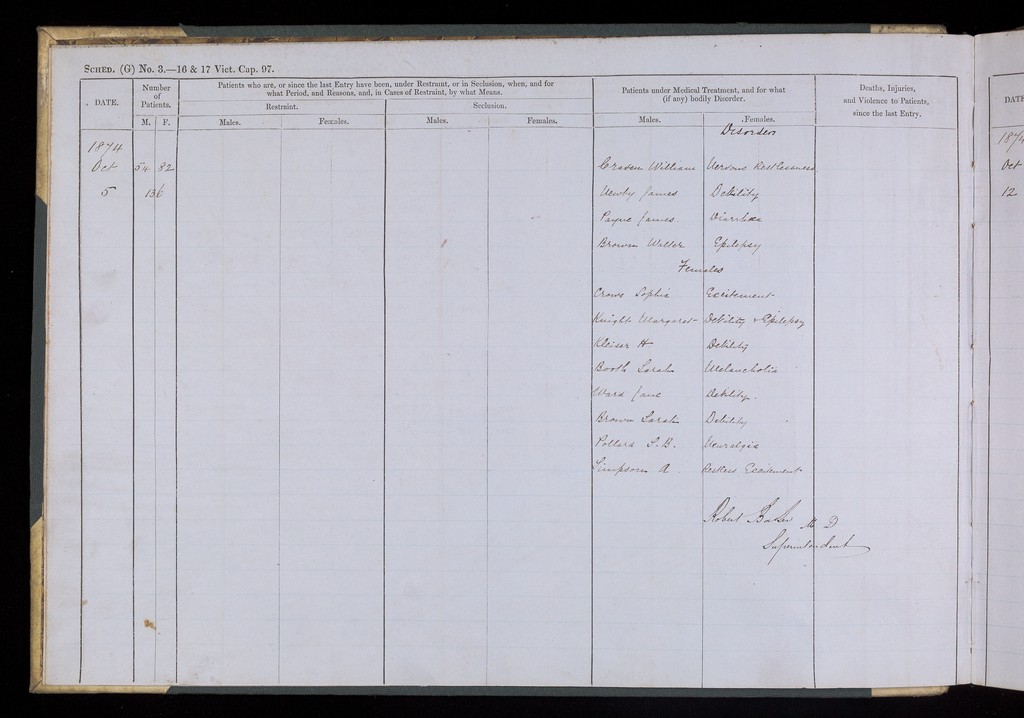 SCHED. (G) No. 3.—16 & 17 Vict. Cap. 97.
DATE.
Number of Patients.
M. F.
Patients who are, or since the last Entry have been, under Restraint, or in Seclusion, when, and for
what Period, and Reasons, and, in Cases of Restraint, by what Means.
Restraint.
Seclusion.
Males. Females. Males. Females.
Patients under Medical Treatment, and for what
(if any) bodily Disorder.
Males. Females.
Deaths, Injuries,
and Violence to Patients,
since the last Entry.
Disorders
1874
Oct 54 82 Craven William Nervous Restlessness
5 136 Newby James Debility
Payne James Diarrhœa
Brown Walter Epilepsy
Females
Crowe Sophia Excitement
Knight Margaret Debility & Epilepsy
Kleiser H Debility
Booth Sarah Melancholia
Ward Jane Debility.
Brown Sarah Debility
Pollard S. B. Neuralgia
Simpson A. Restless Excitement
Robert Baker M D
Superintendent
DATE
1874
Oct
12